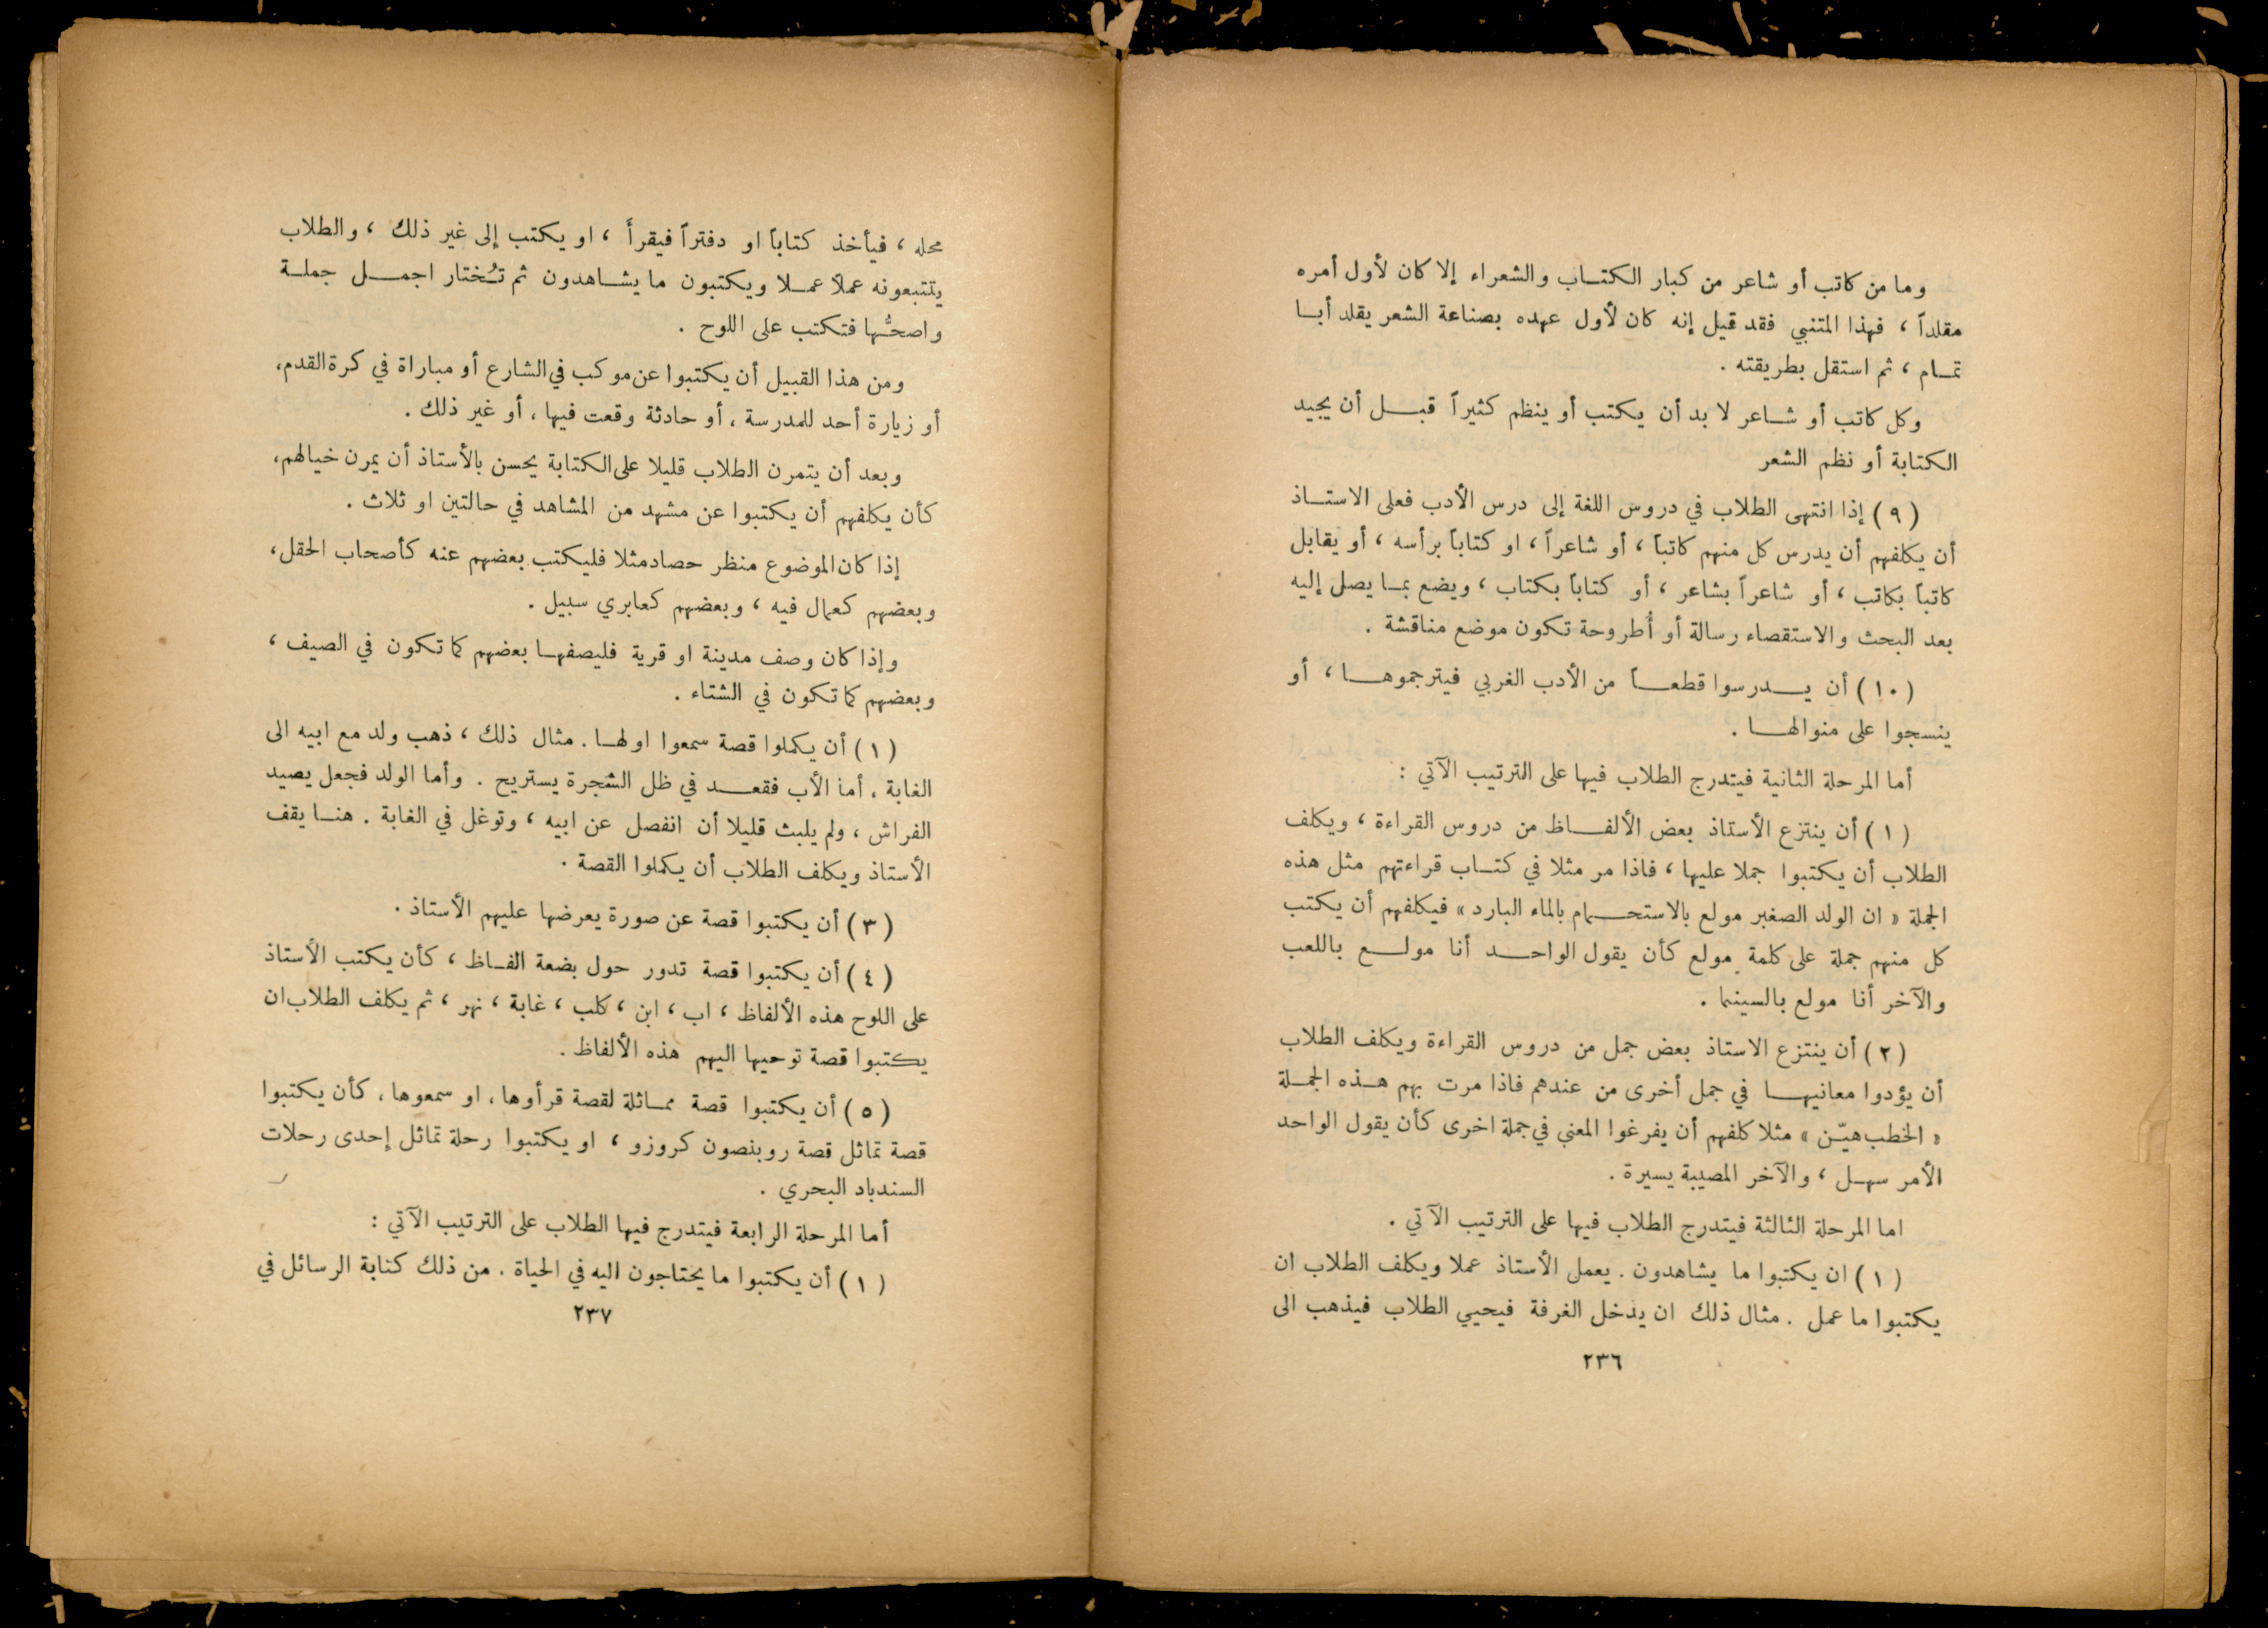 وما من كاتب أو شاعر من كبار الكتاب والشعراء إلا كان لأول أمره
مقلداً ، فهذا المتنبي فقد قيل إنه كان لأول عهده بصناعة الشعر يقلد أبا
تمام ، ثم استقل بطريقته .
وكل كاتب أو شاعر لا بد أن يكتب أو ينظم كثيراً قبل أن يجيد
الكتابة أو نظم الشعر
( ٩ ) إذا انتهى الطلاب في دروس اللغة إلى درس الأدب فعلى الاستاذ
أن يكلفهم أن يدرس كل منهم كاتباً ، أو شاعراً ، او كتاباً برأسه ، أو يقابل
كاتباً بكاتب ، أو شاعراً بشاعر ، أو كتاباً بكتاب ، ويضع بما يصل إليه
بعد البحث والاستقصاء رسالة أو أُطروحة تكون موضع مناقشة .
( ١٠ ) أن يدرسوا قطعاً من الأدب الغربي فيترجموها ، أو
ينسجوا على منوالها .
أما المرحلة الثانية فيتدرج الطلاب فيها على الترتيب الآتي :
( ١ ) أن ينتزع الأستاذ بعض الألفاظ من دروس القراءة ، ويكلف
الطلاب أن يكتبوا جملا عليها ، فاذا مر مثلا في كتاب قراءتهم مثل هذه
الجملة « ان الولد الصغير مولع بالاستحمام بالماء البارد » فيكلفهم أن يكتب
كل منهم جملة على كلمة مولع كأن يقول الواحد أنا مولع باللعب
والآخر أنا مولع بالسينما .
( ٢ ) أن ينتزع الاستاذ بعض جمل من دروس القراءة ويكلف الطلاب
أن يؤدوا معانيها في جمل أخرى من عندهم فاذا مرت بهم هذه الجملة
« الخطب هيّن » مثلا كلفهم أن يفرغوا المعنى في جملة اخرى كأن يقول الواحد
الأمر سهل ، والآخر المصيبة يسيرة .
اما المرحلة الثالثة فيتدرج الطلاب فيها على الترتيب الآتي .
( ١ ) ان يكتبوا ما يشاهدون . يعمل الأستاذ عملا ويكلف الطلاب ان
يكتبوا ما عمل . مثال ذلك ان يدخل الغرفة فيحيي الطلاب فيذهب الى
٢٣٦
محله ، فيأخذ كتاباً او دفتراً فيقرأ ، او يكتب إلى غير ذلك ، والطلاب
يتتبعونه عملاً عملا ويكتبون ما يشاهدون ثم تُختار اجمل جملة
واصحُّها فتكتب على اللوح .
ومن هذا القبيل أن يكتبوا عن موكب في الشارع أو مباراة في كرة القدم ،
أو زيارة أحد للمدرسة ، أو حادثة وقعت فيها ، أو غير ذلك .
وبعد أن يتمرن الطلاب قليلا على الكتابة يحسن بالأستاذ أن يمرن خيالهم ،
كأن يكلفهم أن يكتبوا عن مشهد من المشاهد في حالتين او ثلاث .
إذا كان الموضوع منظر حصاد مثلا فليكتب بعضهم عنه كأصحاب الحقل ،
وبعضهم كعمال فيه ، وبعضهم كعابري سبيل .
وإذا كان وصف مدينة او قرية فليصفها بعضهم كما تكون في الصيف ،
وبعضهم كما تكون في الشتاء .
( ١ ) أن يكملوا قصة سمعوا اولها . مثال ذلك ، ذهب ولد مع ابيه الى
الغابة ، أما الأب فقعد في ظل الشجرة يستريح . وأما الولد فجعل يصيد
الفراش ، ولم يلبث قليلا أن انفصل عن ابيه ، وتوغل في الغابة . هنا يقف
الأستاذ ويكلف الطلاب أن يكملوا القصة .
( ٣ ) أن يكتبوا قصة عن صورة يعرضها عليهم الأستاذ .
( ٤ ) أن يكتبوا قصة تدور حول بضعة الفاظ ، كأن يكتب الأستاذ
على اللوح هذه الألفاظ ، اب ، ابن ، كلب ، غابة ، نهر ، ثم يكلف الطلاب ان
يكتبوا قصة توحيها اليهم هذه الألفاظ .
( ٥ ) أن يكتبوا قصة مماثلة لقصة قرأوها ، او سمعوها ، كأن يكتبوا
قصة تماثل قصة روبنصون كروزو ، او يكتبوا رحلة تماثل إحدى رحلات
السندباد البحري .
أما المرحلة الرابعة فيتدرج فيها الطلاب على الترتيب الآتي :
( ١ ) أن يكتبوا ما يحتاجون اليه في الحياة . من ذلك كتابة الرسائل في
٢٣٧